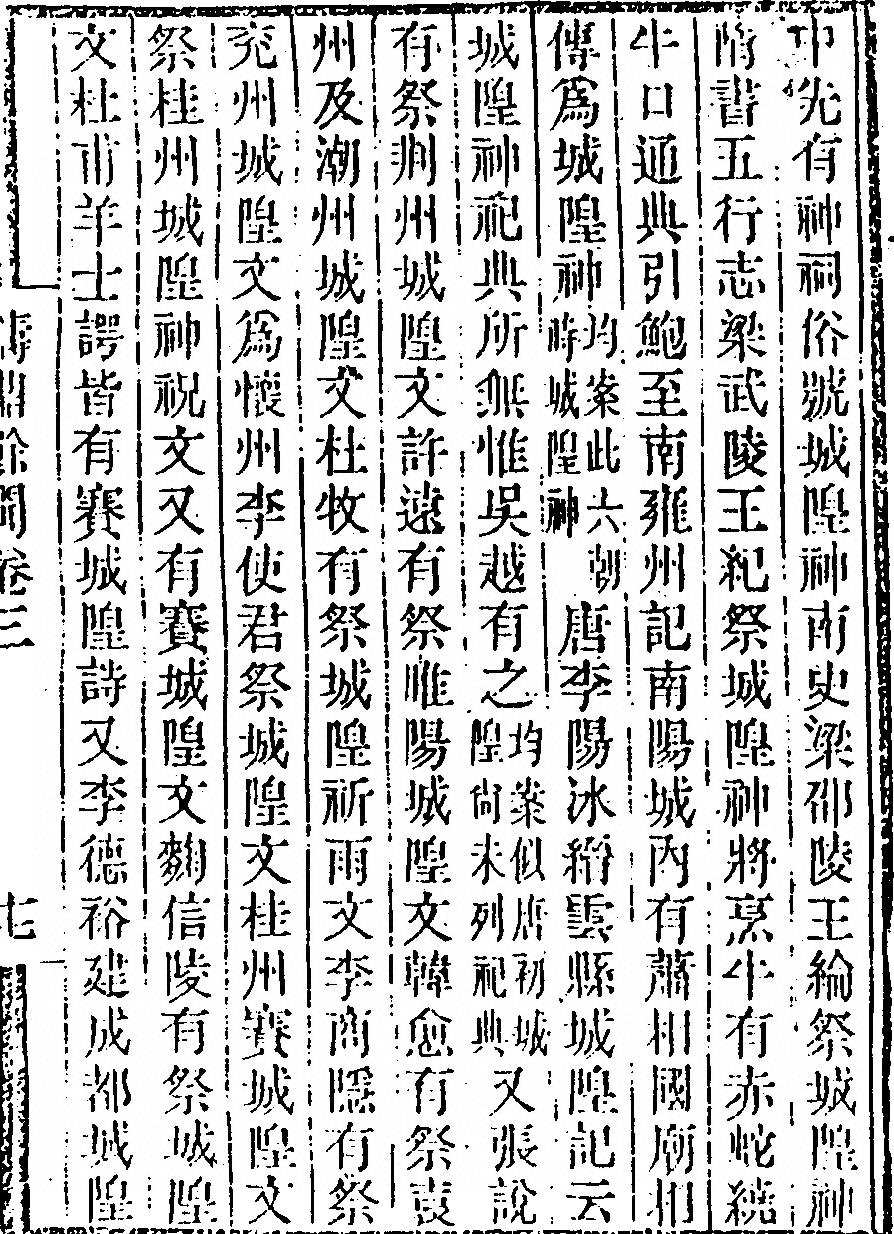 中先有神祠俗號城隍神南史梁邵陵王綸祭城隍神
隋書五行志梁武陵王紀祭城隍神將烹牛有赤蛇繞
牛口通典引鮑至南雍州記南陽城內有蕭相國廟相
傳爲城隍神均案此六朝時城隍神唐李陽冰縉雲縣城隍記云
城隍神祀典所無惟吳越有之均案似唐初城隍尙未列祀典又張說
有祭荆州城隍文許遠有祭睢陽城隍文韓愈有祭袁
州及潮州城隍文杜牧有祭城隍祈雨文李商隱有祭
兖州城隍文爲懷州李使君祭城隍文桂州賽城隍文
祭桂州城隍神祝文又有賽城隍文麴信陵有祭城隍
文杜甫羊士諤皆有賽城隍詩又李德裕建成都城隍
餘聞卷三
七